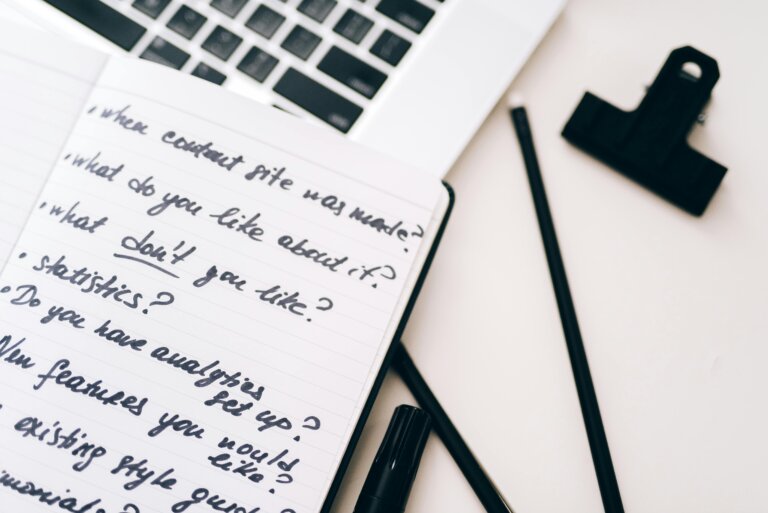 • when content site was made?
• what do you like about it?
• what don't you like?
• statistics?
• Do you have analytics
set up?
New features you would
like?
existing style guide
?